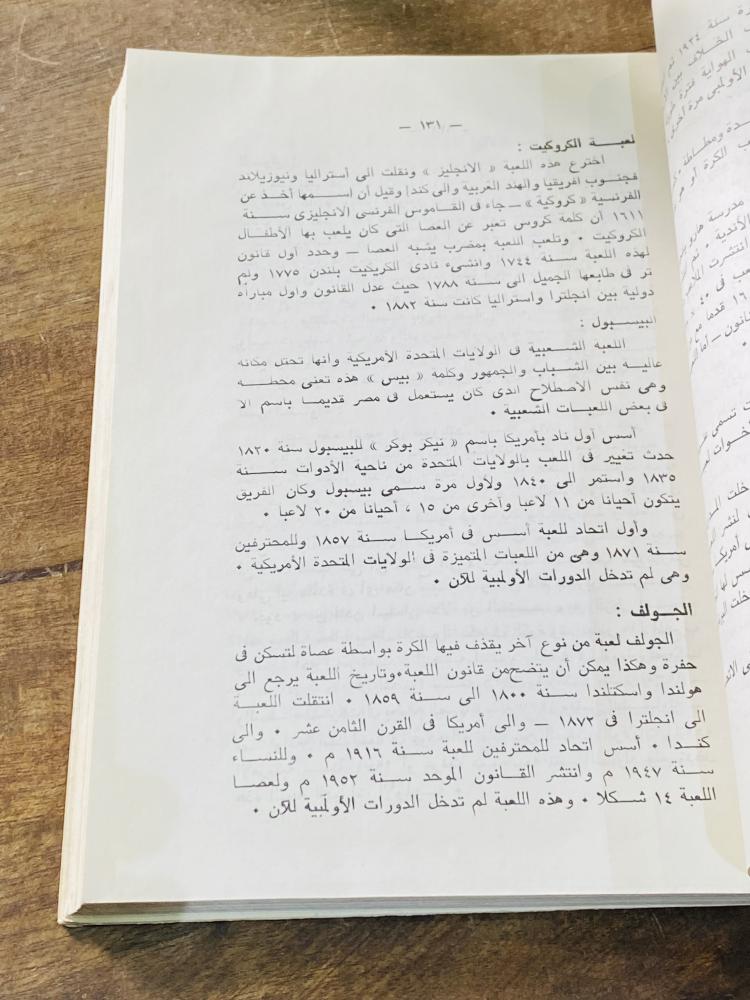 — ١٣١ —
لعبـــة الكروكيت :
اخترع هذه اللعبة « الانجليز » ونقلت الى أستراليا ونيوزيلاند
فجنوب افريقيا والهند الغربية والى كندا وقيل أن اســمها أخــذ عن
الفرنسية « كروكية » ــ جاء فى القاموس الفرنسى الانجليزى ســنة
١٦١١ أن كلمة كروس تعبر عن العصا التى كان يلعب بها الأطفال
الكروكيت • وتلعب اللعبة بمضرب يشبه العصا ــ وحدد أول قانون
لهذه اللعبة سنة ١٧٤٤ وانشىء نادى الكريكيت بلندن ١٧٧٥ ولم
تر فى طابعها الجميل الى سنة ١٧٨٨ حيث عدل القانون واول مباراه
دولية بين انجلترا واستراليا كانت سنة ١٨٨٢ •
البيســبول :
اللعبه الشــعبية فى الولايات المتحدة الأمريكية وانها تحتل مكانه
عاليــه بين الشــباب والجمهور وكلمه « بيس » هذه تعنى محطــه
وهى نفس الاصطلاح الذى كان يستعمل فى مصر قديمــا باسم الا
فى بعض اللعبــات الشعبية •
أسس أول ناد بأمريكا باسم « نيكر بوكر » للبيسبول سنة ١٨٢٠
حدث تغيير فى اللعب بالولايات المتحدة من ناحيه الأدوات ســـنة
١٨٣٥ واستمر الى ١٨٤٠ ولأول مرة ســمى بيسبول وكان الفريق
يتكون أحيانا من ١١ لاعبا وأخرى من ١٥ ، أحيانا من ٢٠ لاعبا •
وأول اتحاد للعبة أسس فى أمريكــا سنة ١٨٥٧ وللمحترفين
ســنة ١٨٧١ وهى من اللعبات المتميزة فى الولايات المتحدة الأمريكية •
وهى لم تدخل الدورات الأولمبية للآن •
الجــولف :
الجولف لعبة من نوع آخر يقذف فيها الكرة بواسطة عصاة لتسكن فى
حفرة وهكذا يمكن أن يتضح من قانون اللعبة•وتاريخ اللعبة يرجع الى
هولندا واسكتلندا ســنة ١٨٠٠ الى سنة ١٨٥٩ • انتقلت اللعبــة
الى انجلترا فى ١٨٧٢ ــ والى أمريكا فى القرن الثامن عشر • والى
كنــدا • أسس اتحاد للمحترفين للعبة سنــة ١٩١٦ م • وللنســاء
سنــة ١٩٤٧ م وانتشر القــانون الموحد سنــة ١٩٥٢ م ولعصــا
اللعبة ١٤ شــكلا • وهذه اللعبة لم تدخل الدورات الأولمبية للآن •